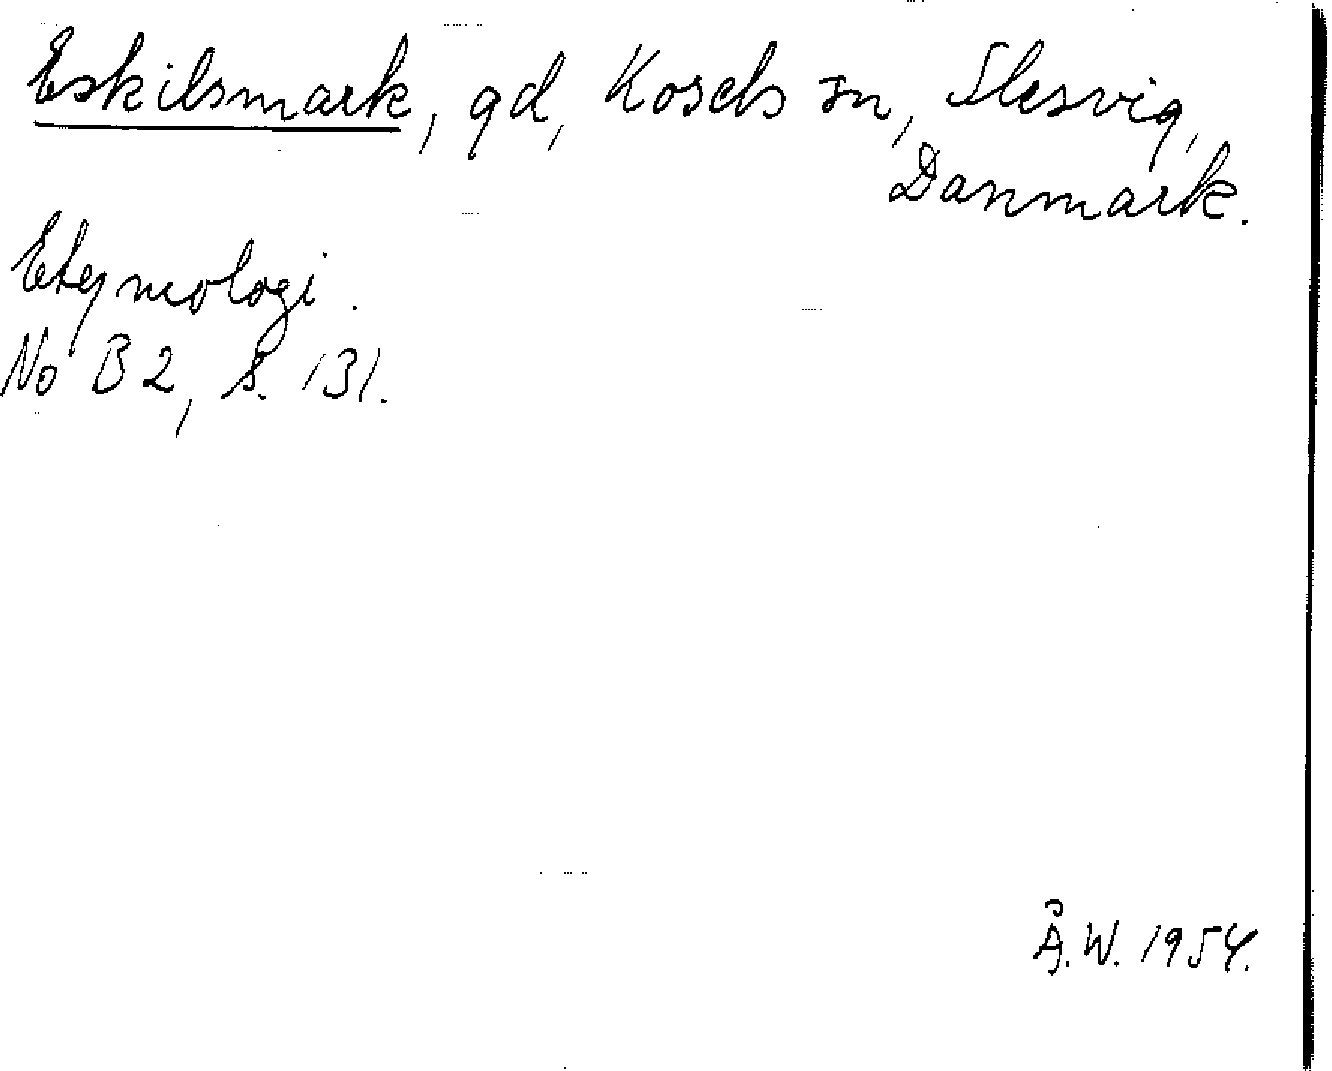 Eskilsmark, gd, Kosels sn, Slesvig,
Danmark.
Etymologi.
No B 2, s. 131.
Å.W. 1954.